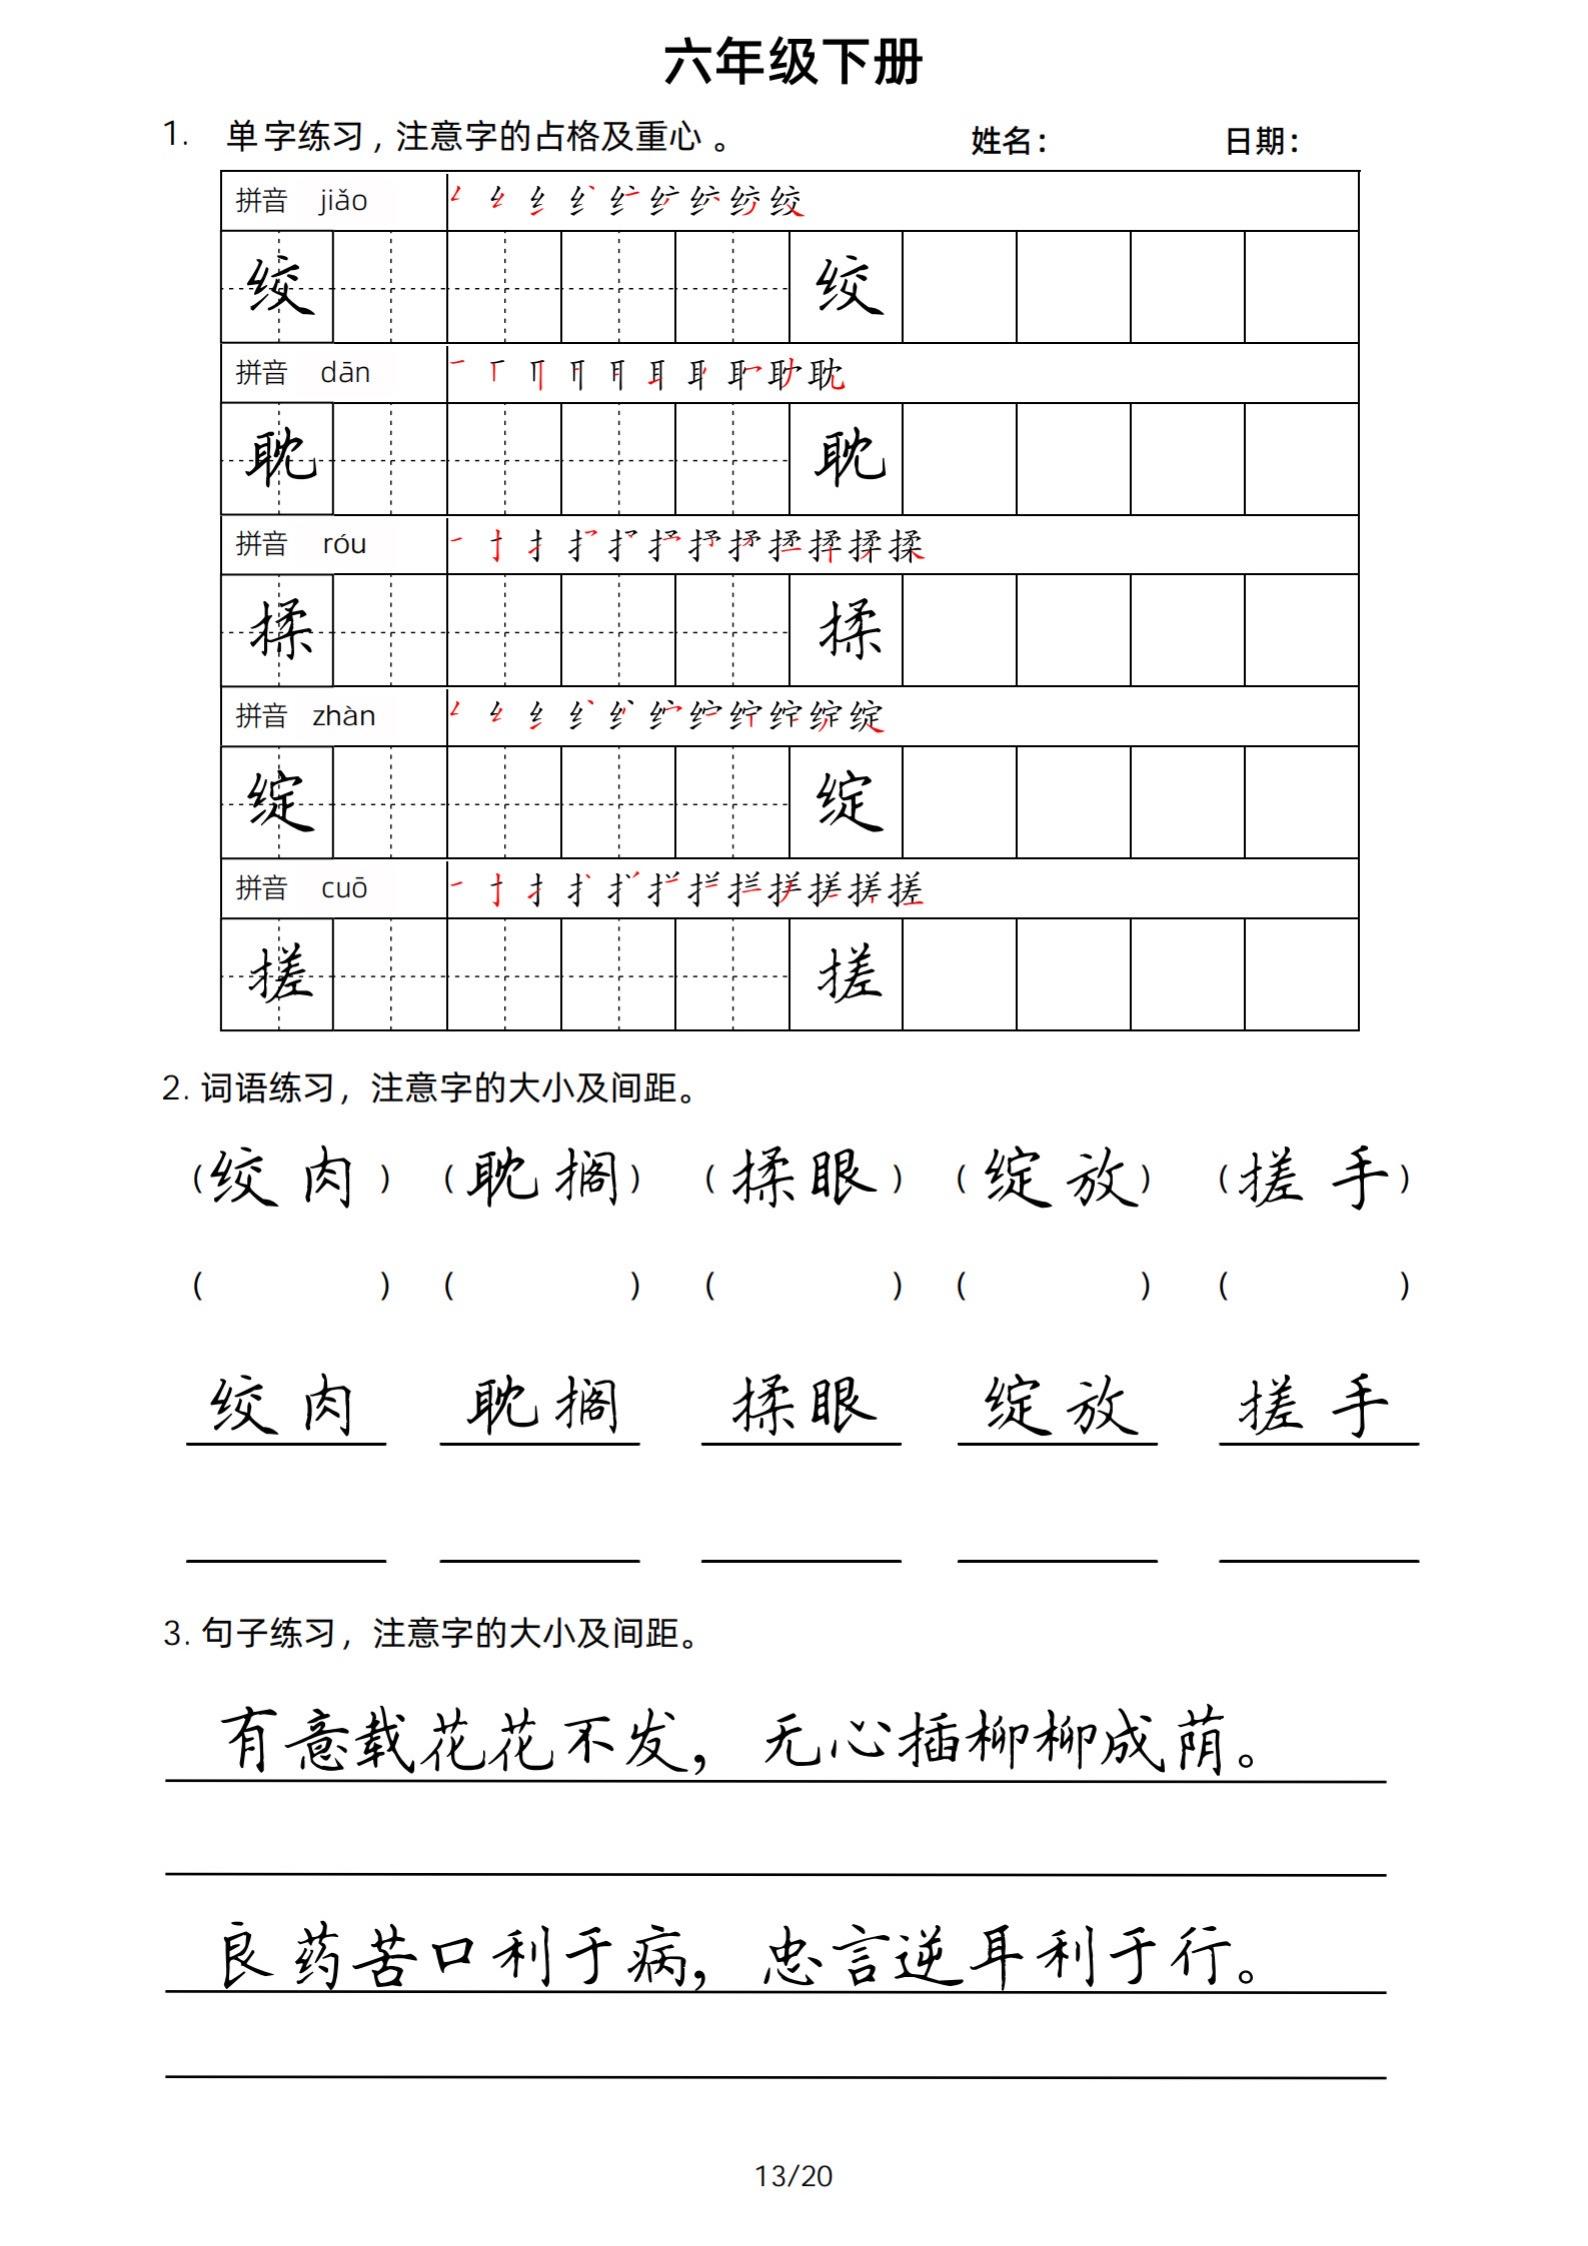 六年级下册
1. 单字练习，注意字的占格及重心。 姓名： 日期：
拼音 jiǎo
绞 绞
拼音 dān
耽 耽
拼音 róu
揉 揉
拼音 zhàn
绽 绽
拼音 cuō
搓 搓
2. 词语练习，注意字的大小及间距。
（绞肉）（耽搁）（揉眼）（绽放）（搓手）
（ ）（ ）（ ）（ ）（ ）
绞肉 耽搁 揉眼 绽放 搓手
3. 句子练习，注意字的大小及间距。
有意载花花不发，无心插柳柳成荫。
良药苦口利于病，忠言逆耳利于行。
13/20